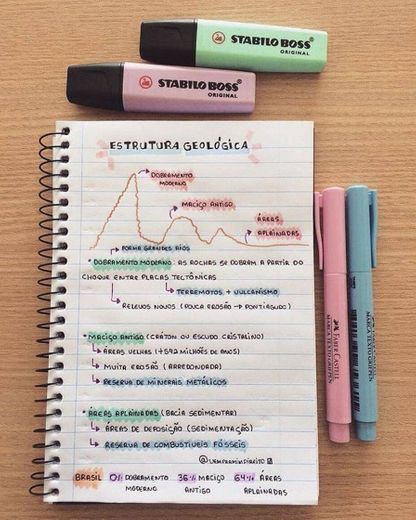 STABILO BOSS®
ORIGINAL
STABILO BOSS®
ORIGINAL
ESTRUTURA GEOLÓGICA
DOBRAMENTO
MODERNO
MACIÇO ANTIGO
ÁREAS
APLAINADAS
FORMA GRANDES RIOS
• DOBRAMENTO MODERNO: AS ROCHAS SE DOBRAM A PARTIR DO
CHOQUE ENTRE PLACAS TECTÔNICAS
TERREMOTOS + VULCANISMO
RELEVOS NOVOS (POUCA EROSÃO → PONTIAGUDO)
• MACIÇO ANTIGO (CRÁTON OU ESCUDO CRISTALINO)
ÁREAS VELHAS (+542 MILHÕES DE ANOS)
MUITA EROSÃO (ARREDONDADA)
RESERVA DE MINERAIS METÁLICOS
• ÁREAS APLAINADAS (BACIA SEDIMENTAR)
ÁREAS DE DEPOSIÇÃO (SEDIMENTAÇÃO)
RESERVA DE COMBUSTÍVEIS FÓSSEIS
@VEMPRAMIMDIREITO
BRASIL 0% DOBRAMENTO 36% MACIÇO 64% ÁREAS
MODERNO ANTIGO APLAINADAS
FABER-CASTELL
MARCA TEXTO GRIFPEN
MARCA TEXTO GRIFPEN